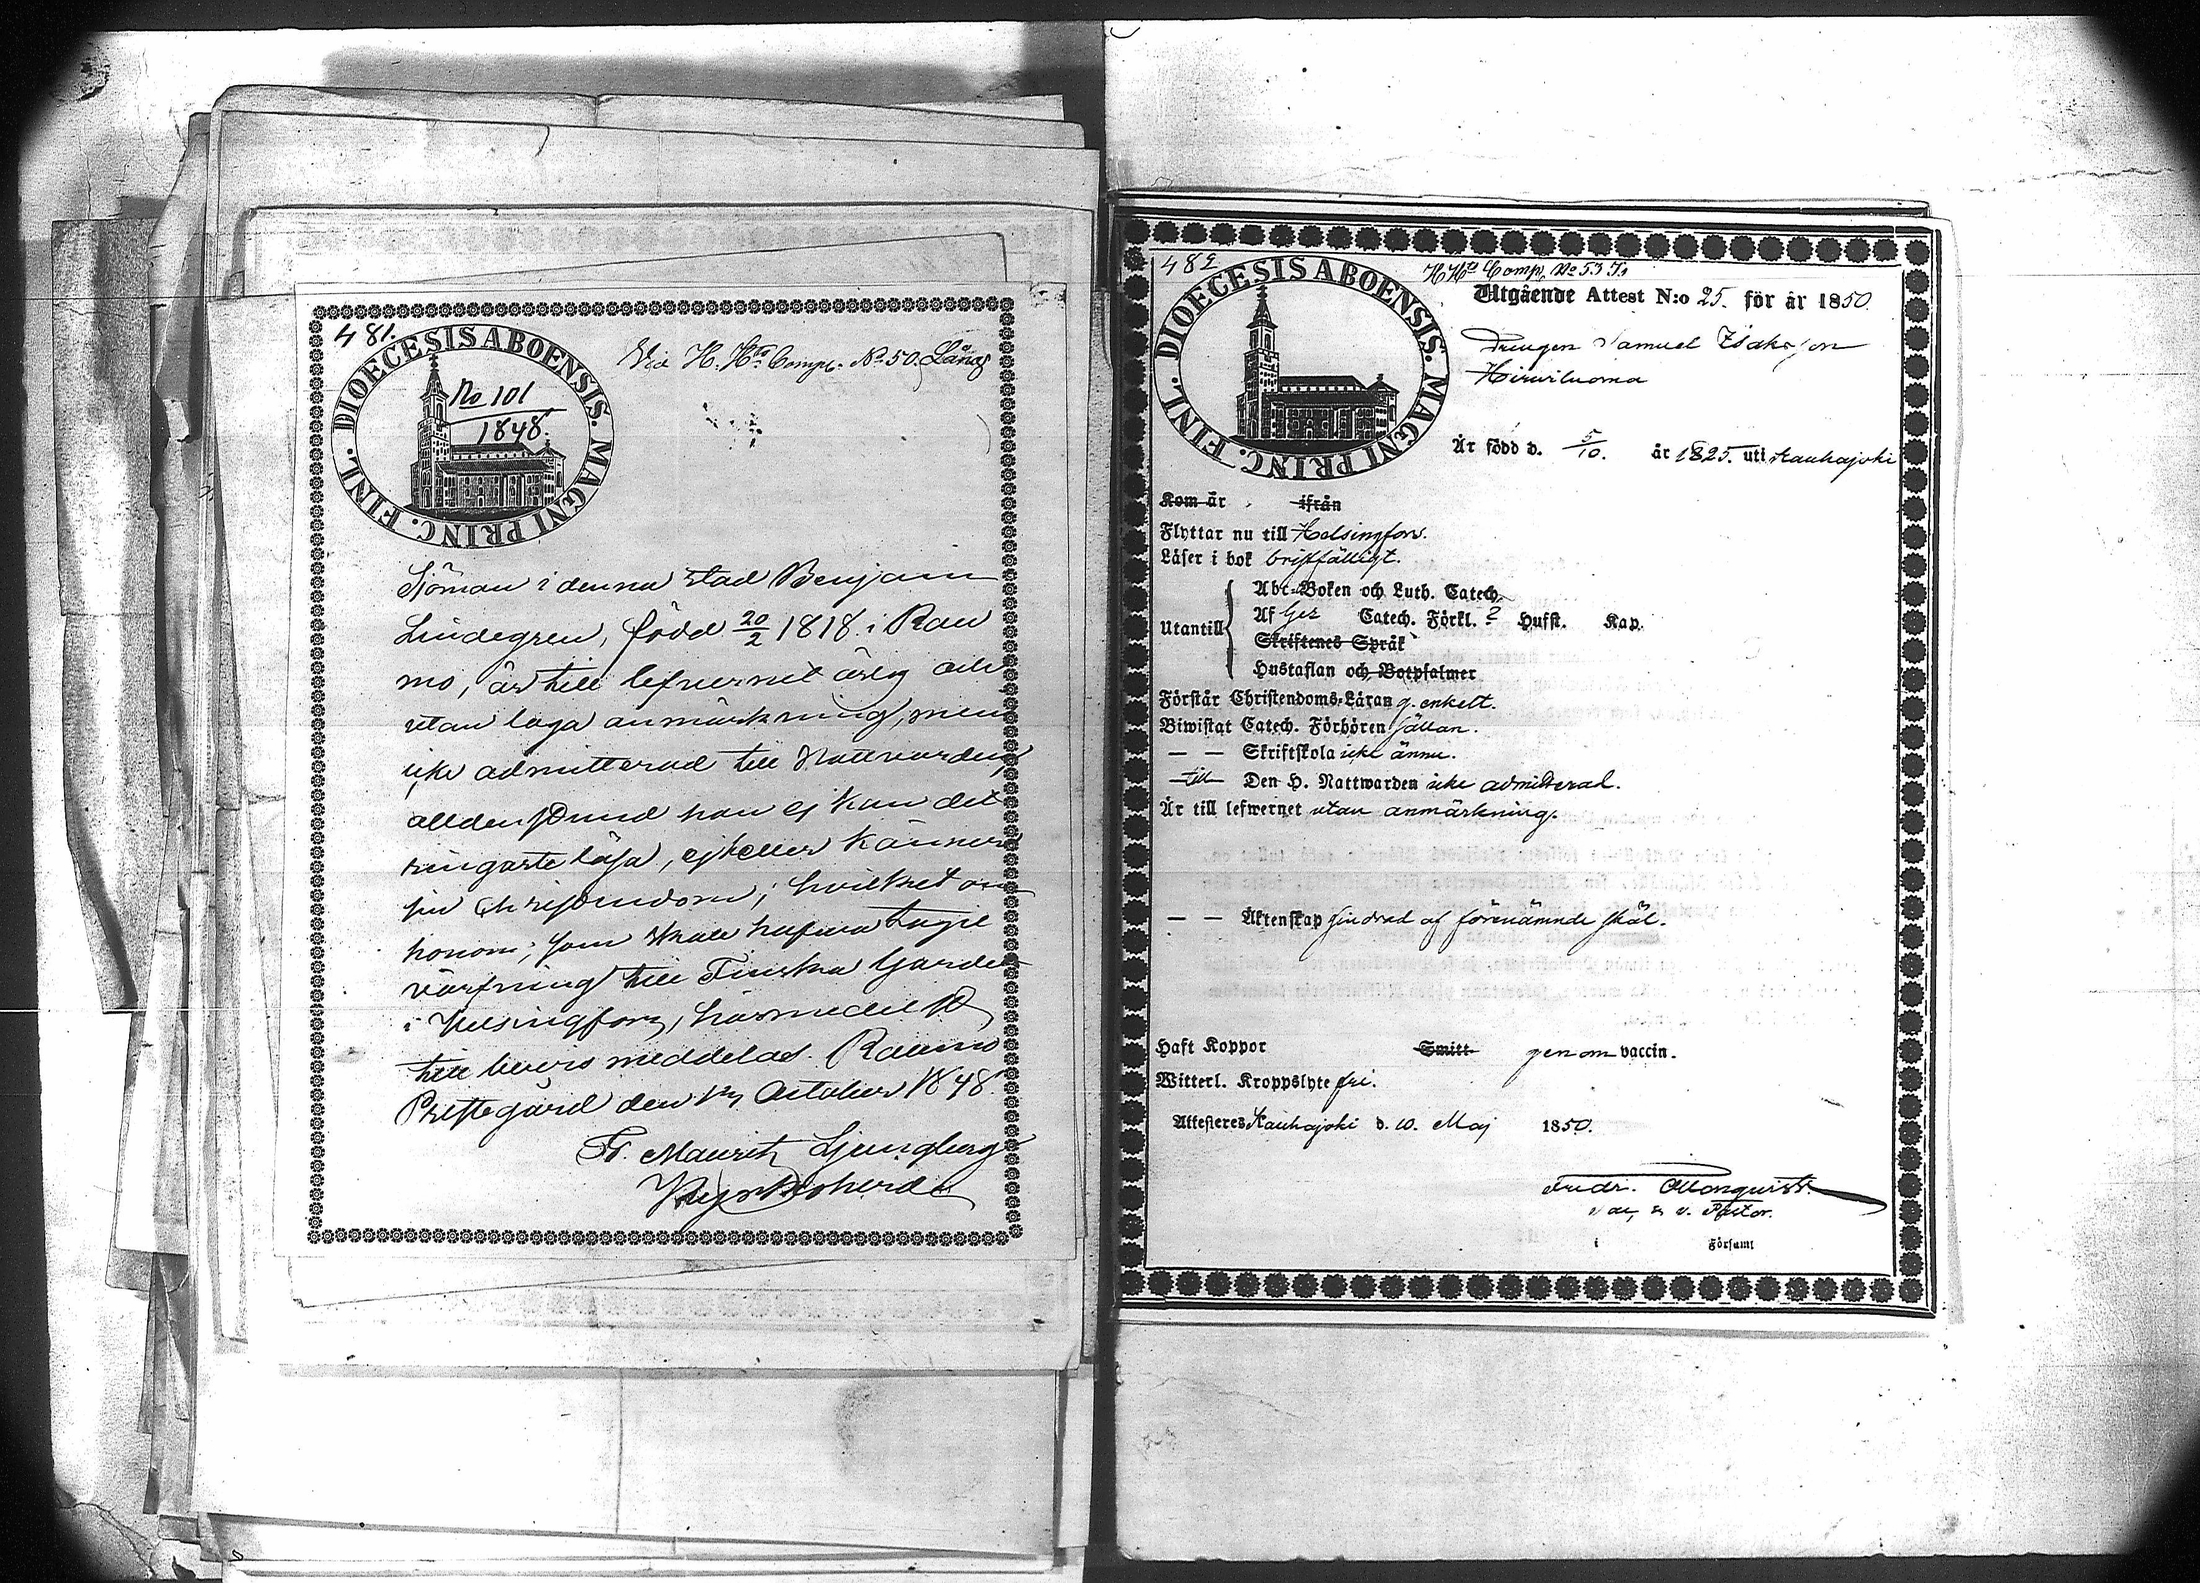 481.
DIOECESIS ABOENSIS. MAGNI PRINC. FINL.
No 101
1848.
Via H. Hts Comp. No 50. Lång
Sjöman i denna stad Benjamin
Lindegren, född 20/2 1818 i Rau
mo, är till lefvernet ärlig och
utan laga anmärkning, men
icke admitterad till Nattvarden,
alldenstund han ej kan det
ringaste läsa, ej heller känner
sin Christendom; hvilket om
honom, som skall hafva tagit
värfning till Finska Gardet
i Helsingfors, härmedelst
till bevis meddelas. Raumo
Prestegård den October 1848.
Fr. Mauritz Ljungberg
Kyrkoherde
482.
DIOECESIS ABOENSIS. MAGNI PRINC. FINL.
H Hts Comp. No 53
Utgående Attest N:o 25. för år 1850.
Drengen Samuel Isaksson
Hirviluoma
Är född d. 5/10. år 1825. uti Kauhajoki
Kom år ifrån
Flyttar nu till Helsingfors.
Läser i bok bristfälligt.
Utantill
Abc-Boken och Luth. Catech.
Af Gez Catech. Förkl. 2 Hufst. Kap.
Skriftenes Språk
Hustaflan och Botpsalmer
Förstår Christendoms-Läran g. enkelt.
Biwistat Catech. Förhören sällan.
— — Skriftskola icke ännu.
till Den H. Nattwarden icke admitterad.
Är till lefwernet utan anmärkning.
— — Äktenskap hindrad af förenämnde skäl.
Haft Koppor Smitt genom vaccin.
Witterl. Kroppslyte fri.
Attesteres Kauhajoki d. 10. Maj 1850.
Fredr. Almonquist
v. Pastor.
i Församl